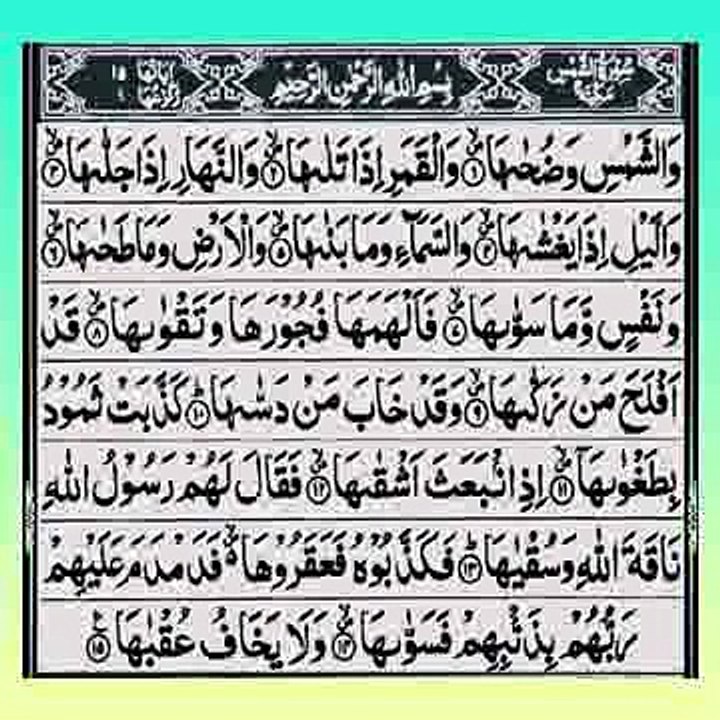 سُوْرَةُ الشَّمْسِ مَكِّيَّةٌ بِسْمِ اللهِ الرَّحْمٰنِ الرَّحِيْمِ اٰيَاتُهَا ١٥ رُكُوْعُهَا ١
وَالشَّمْسِ وَضُحٰىهَا ۙ﴿١﴾ وَالْقَمَرِ اِذَا تَلٰىهَا ۙ﴿٢﴾ وَالنَّهَارِ اِذَا جَلّٰىهَا ۙ﴿٣﴾
وَالَّيْلِ اِذَا يَغْشٰىهَا ۙ﴿٤﴾ وَالسَّمَآءِ وَمَا بَنٰىهَا ۙ﴿٥﴾ وَالْاَرْضِ وَمَا طَحٰىهَا ۙ﴿٦﴾
وَنَفْسٍ وَّمَا سَوّٰىهَا ۙ﴿٧﴾ فَاَلْهَمَهَا فُجُوْرَهَا وَتَقْوٰىهَا ۙ﴿٨﴾ قَدْ
اَفْلَحَ مَنْ زَكّٰىهَا ۙ﴿٩﴾ وَقَدْ خَابَ مَنْ دَسّٰىهَا ؕ﴿١٠﴾ كَذَّبَتْ ثَمُوْدُ
بِطَغْوٰىهَاۤ ۙ﴿١١﴾ اِذِ انْۢبَعَثَ اَشْقٰىهَا ۙ﴿١٢﴾ فَقَالَ لَهُمْ رَسُوْلُ اللهِ
نَاقَةَ اللهِ وَسُقْيٰهَا ؕ﴿١٣﴾ فَكَذَّبُوْهُ فَعَقَرُوْهَا ۙ۬ فَدَمْدَمَ عَلَيْهِمْ
رَبُّهُمْ بِذَنْۢبِهِمْ فَسَوّٰىهَا ۙ﴿١٤﴾ وَلَا يَخَافُ عُقْبٰهَا ﴿١٥﴾